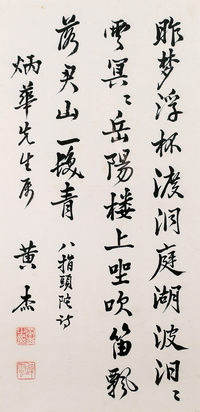 昨梦浮杯渡洞庭湖波汨〻
雲冥〻岳陽楼上坐吹笛飄
落君山一撥青　八指頭陀诗
炳華先生屬　黄杰